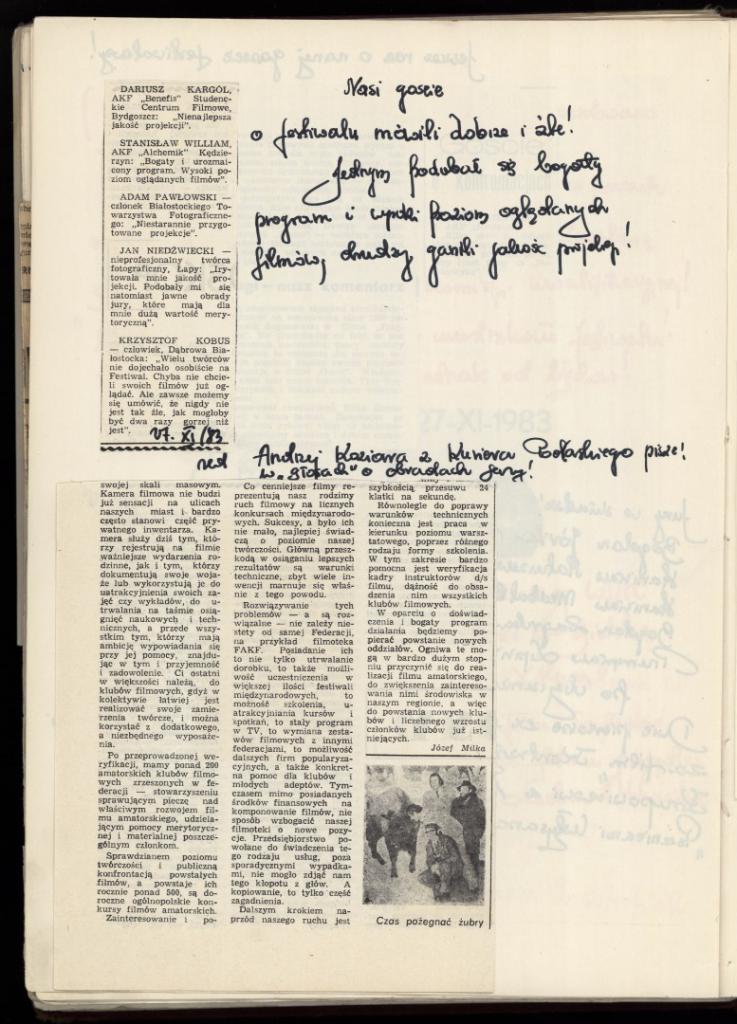 DARIUSZ KARGÓL,
AKF „Benefis" Studenc-
kie Centrum Filmowe,
Bydgoszcz: „Nienajlepsza
jakość projekcji".
STANISŁAW WILLIAM,
AKF „Alchemik" Kędzie-
rzyn: „Bogaty i urozmai-
cony program. Wysoki po-
ziom oglądanych filmów".
ADAM PAWŁOWSKI —
członek Białostockiego To-
warzystwa Fotograficzne-
go: „Niestarannie przygo-
towane projekcje".
JAN NIEDŹWIECKI —
nieprofesjonalny twórca
fotograficzny, Łapy: „Iry-
towała mnie jakość pro-
jekcji. Podobały mi się
natomiast jawne obrady
jury, które mają dla
mnie dużą wartość mery-
toryczną".
KRZYSZTOF KOBUS
— człowiek, Dąbrowa Bia-
łostocka: „Wielu twórców
nie dojechało osobiście na
Festiwal. Chyba nie chcie-
li swoich filmów już og-
lądać. Ale zawsze możemy
się umówić, że nigdy nie
jest tak źle, jak mogłoby
być dwa razy gorzej niż
jest".
27. XI /83
Nasi goście
o festiwalu mówili dobrze i źle!
Jednym podobał się bogaty
program i wysoki poziom oglądanych
filmów, drudzy ganili jakość projekcji!
27-XI-1983
Andrzej Koziara z Kuriera Podlaskiego pisze!
w "Głosach" o obradach jury!
swojej skali masowym.
Kamera filmowa nie budzi
już sensacji na ulicach
naszych miast i bardzo
często stanowi część pry-
watnego inwentarza. Ka-
mera służy dziś tym, któ-
rzy rejestrują na filmie
ważniejsze wydarzenia ro-
dzinne, jak i tym, którzy
dokumentują swoje woja-
że lub wykorzystują je do
uatrakcyjnienia swoich za-
jęć czy wykładów, do u-
trwalania na taśmie osią-
gnięć naukowych i tech-
nicznych, a przede wszy-
stkim tym, którzy mają
ambicję wypowiadania się
przy jej pomocy, znajdu-
jąc w tym i przyjemność
i zadowolenie. Ci ostatni
w większości należą do
klubów filmowych, gdyż w
kolektywie łatwiej jest
realizować swoje zamie-
rzenia twórcze, i można
korzystać z dodatkowego,
a niezbędnego wyposaże-
nia.
Po przeprowadzonej we-
ryfikacji, mamy ponad 200
amatorskich klubów filmo-
wych zrzeszonych w fe-
deracji — stowarzyszeniu
sprawującym pieczę nad
właściwym rozwojem fil-
mu amatorskiego, udziela-
jącym pomocy merytorycz-
nej i materialnej poszcze-
gólnym członkom.
Sprawdzianem poziomu
twórczości i publiczną
konfrontacją powstałych
filmów, a powstaje ich
rocznie ponad 500, są do-
roczne ogólnopolskie kon-
kursy filmów amatorskich.
Zainteresowanie i po-
Co cenniejsze filmy re-
prezentują nasz rodzimy
ruch filmowy na licznych
konkursach międzynarodo-
wych. Sukcesy, a było ich
nie mało, najlepiej świad-
czą o poziomie naszej
twórczości. Główną przesz-
kodą w osiąganiu lepszych
rezultatów są warunki
techniczne, zbyt wiele in-
wencji marnuje się właś-
nie z tego powodu.
Rozwiązywanie tych
problemów — a są roz-
wiązalne — nie zależy nie-
stety od samej Federacji,
na przykład filmoteka
FAKF. Posiadanie ich to
nie tylko utrwalanie
dorobku, to także możli-
wość uczestniczenia w
większej ilości festiwali
międzynarodowych, to
możność szkolenia, u-
atrakcyjniania kursów i
spotkań, to stały program
w TV, to wymiana zesta-
wów filmowych z innymi
federacjami, to możliwość
dalszych form popularyza-
cyjnych, a także konkret-
na pomoc dla klubów i
młodych adeptów. Tym-
czasem mimo posiadanych
środków finansowych na
kopiowanie filmów, nie
sposób wzbogacić naszej
filmoteki o nowe pozy-
cje. Przedsiębiorstwo po-
wołane do świadczenia te-
go rodzaju usług, poza
sporadycznymi wypadka-
mi, nie mogło zdjąć nam
tego kłopotu z głów. A
kopiowanie, to tylko część
zagadnienia.
Dalszym krokiem na-
przód naszego ruchu jest
szybkością przesuwu 24
klatki na sekundę.
Równolegle do poprawy
warunków technicznych
konieczna jest praca w
kierunku poziomu warsz-
tatowego, poprzez różnego
rodzaju formy szkolenia.
W tym zakresie bardzo
pomocna jest weryfikacja
kadry instruktorów d/s
filmu, dążność do obsa-
dzenia nim wszystkich
klubów filmowych.
W oparciu o doświad-
czenia i bogaty program
działania będziemy po-
pierać powstanie nowych
oddziałów. Ogniwa te mo-
gą w bardzo dużym stop-
niu przyczynić się do rea-
lizacji filmu amatorskiego,
do zwiększenia zaintereso-
wania nimi środowiska w
naszym regionie, a więc
do powstania nowych klu-
bów i liczebnego wzrostu
członków klubów już ist-
niejących.
Józef Milka
Czas pożegnać żubry